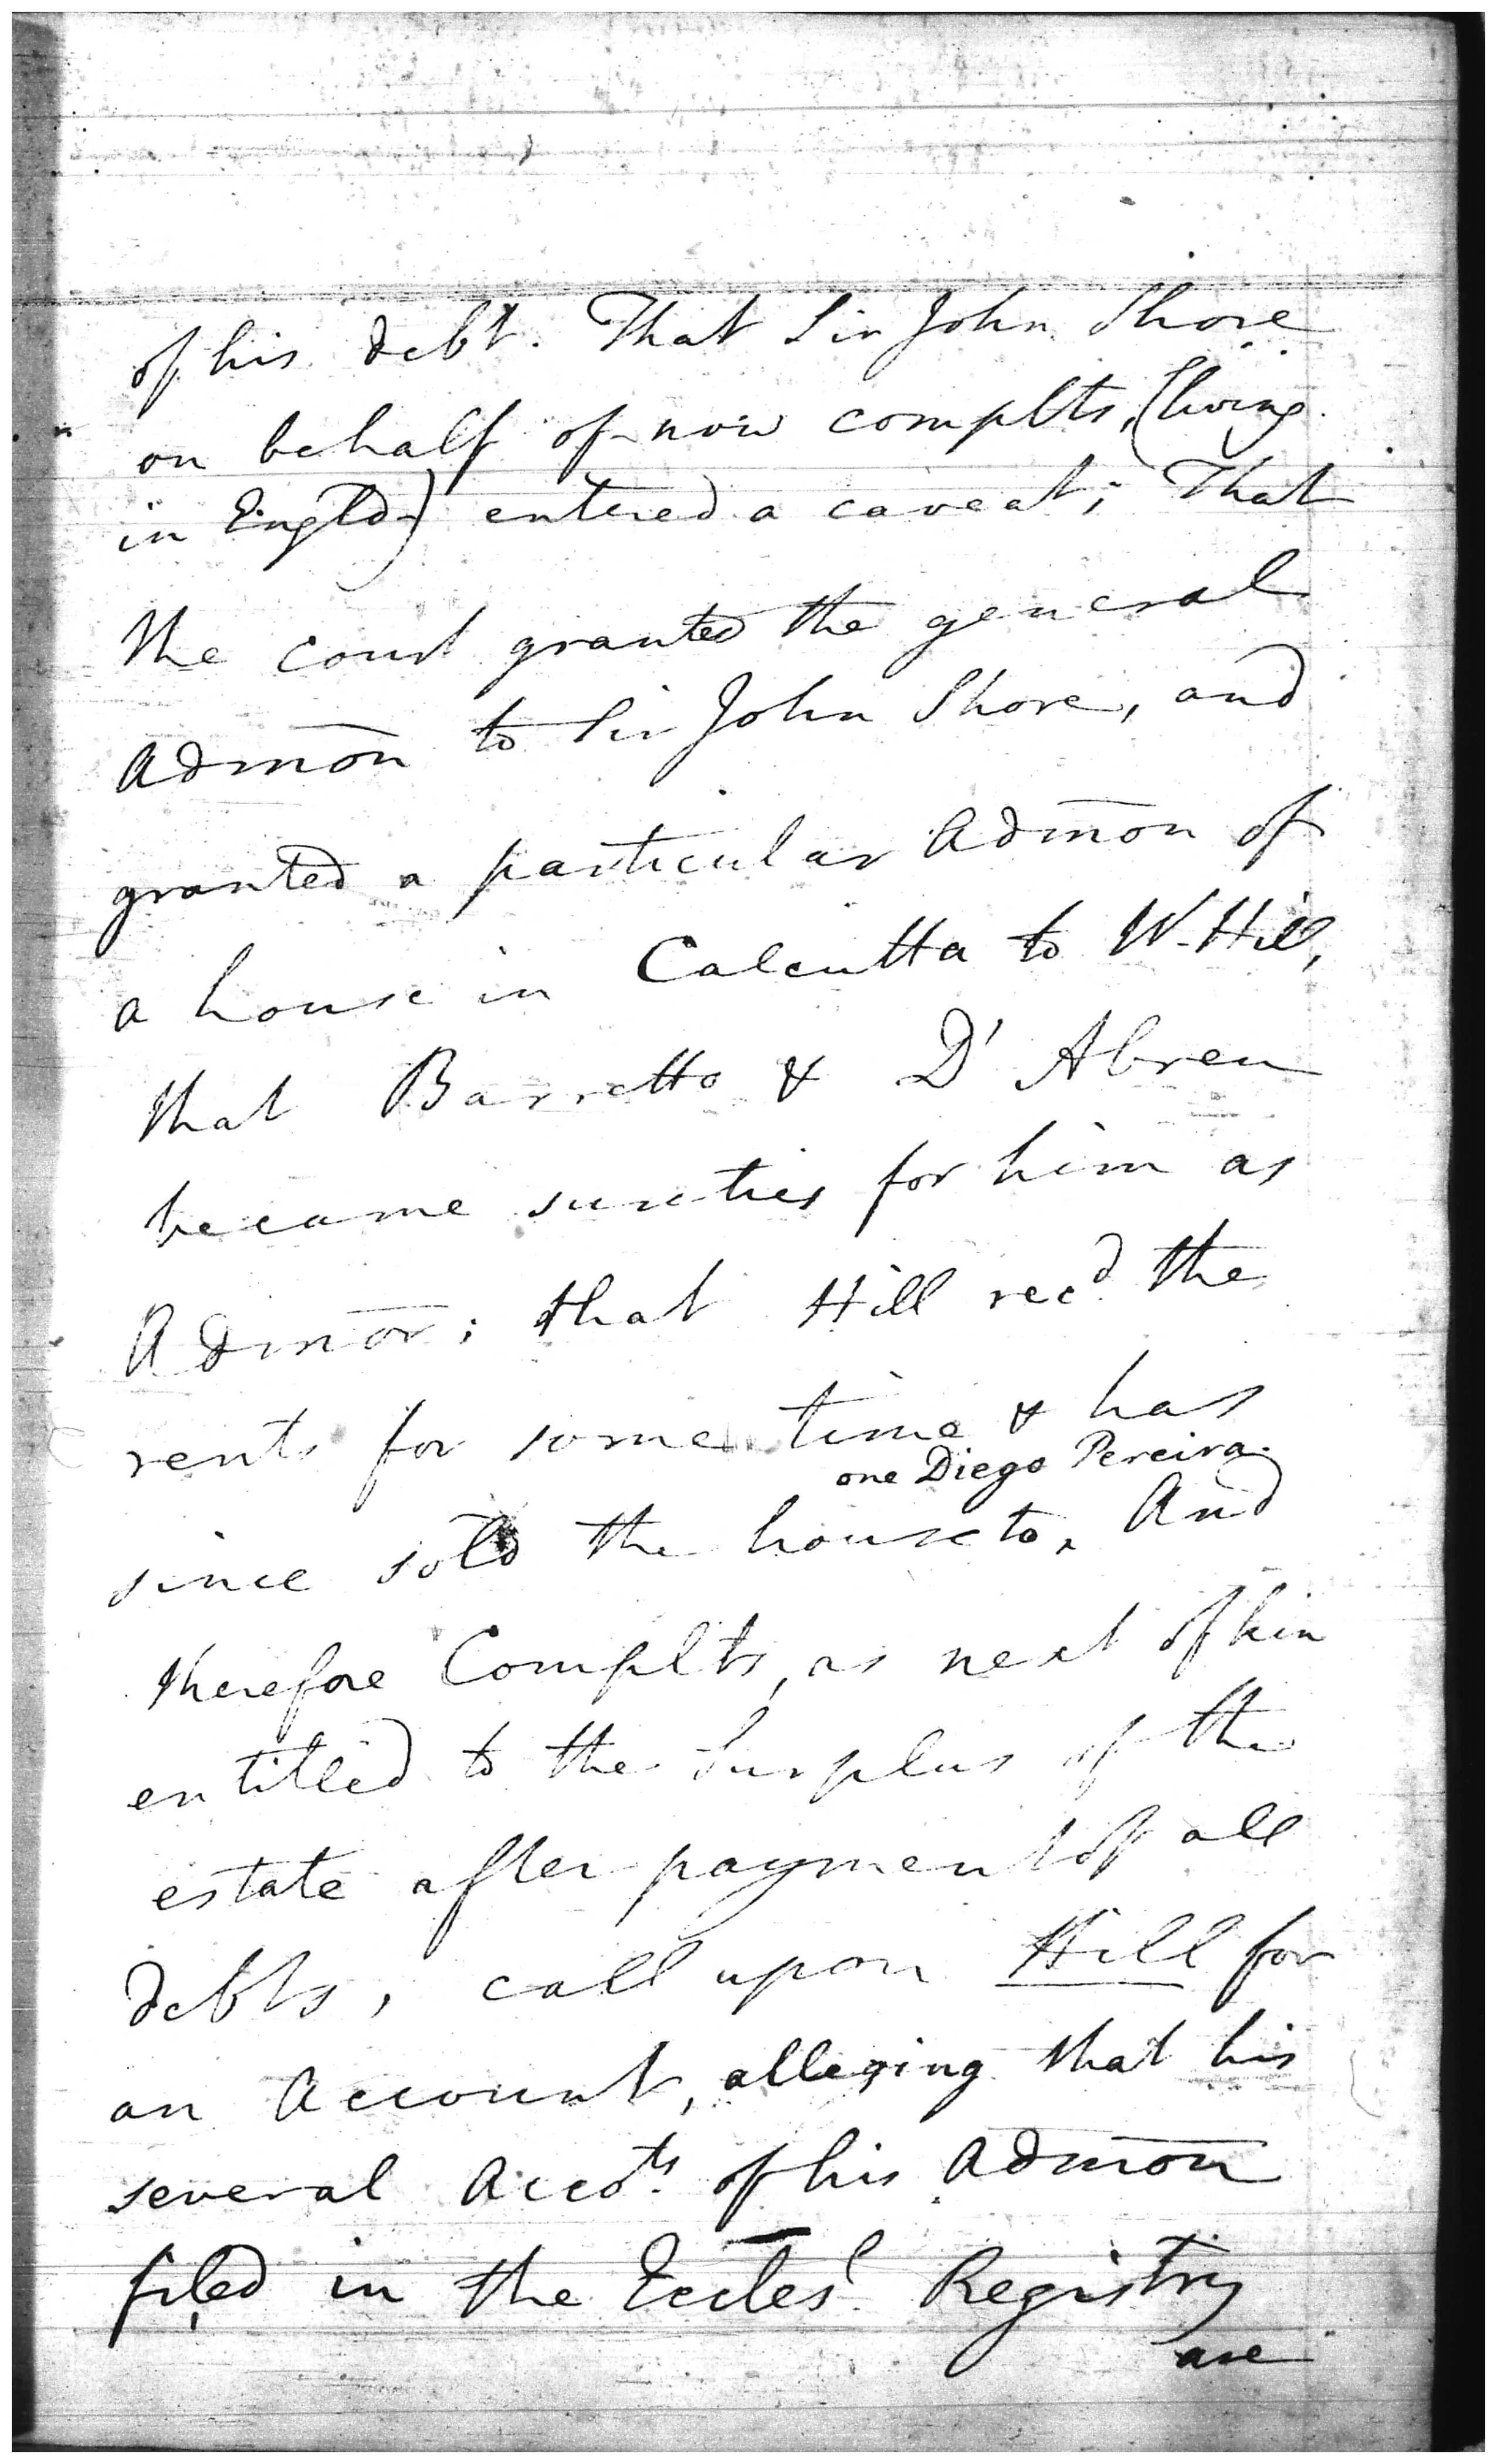 of his debt. That Sir John Shore
on behalf of now complts, (living
in Engld) entered a caveat; That
the court granted the general
Admōn to Sir John Shore, and
granted a particular Admōn of
a house in Calcutta to W. Hill,
that Barretto & D'Abreu
became sureties for him as
Admōr; that Hill recd. the
rents for some time & has
one Diego Pereira.
since sold the house to, And
therefore Complts, as next of kin
entitled to the Surplus of the
estate after payment of all
debts, call upon Hill for
an Account, alleging that his
several Accots. of his Admōn
filed in the Eccles.l Registry
are